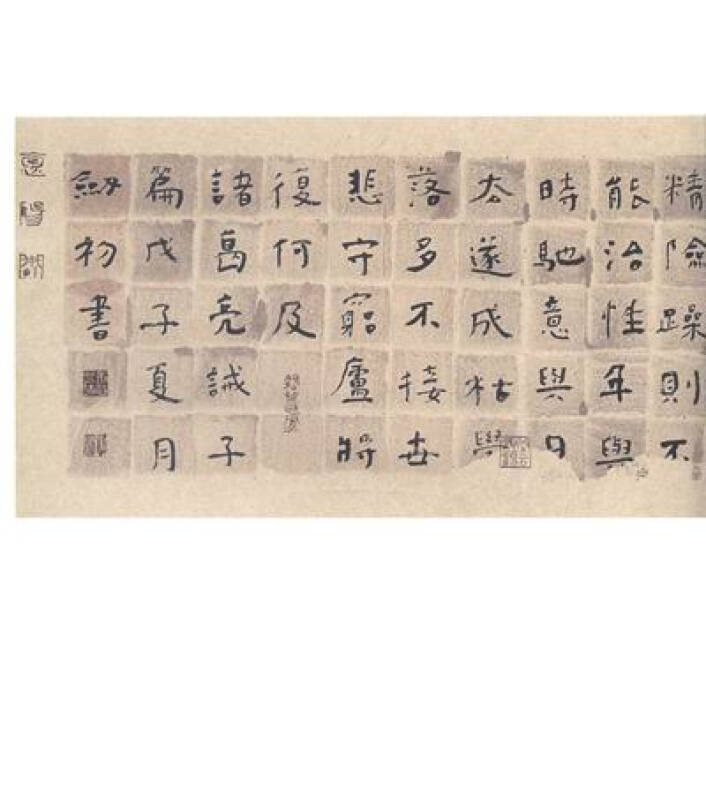 精險躁則不
能治性年與
時馳意與日
去遂成枯
落多不接世
悲守窮廬將
復何及
諸葛亮誡子
篇戊子夏月
初書